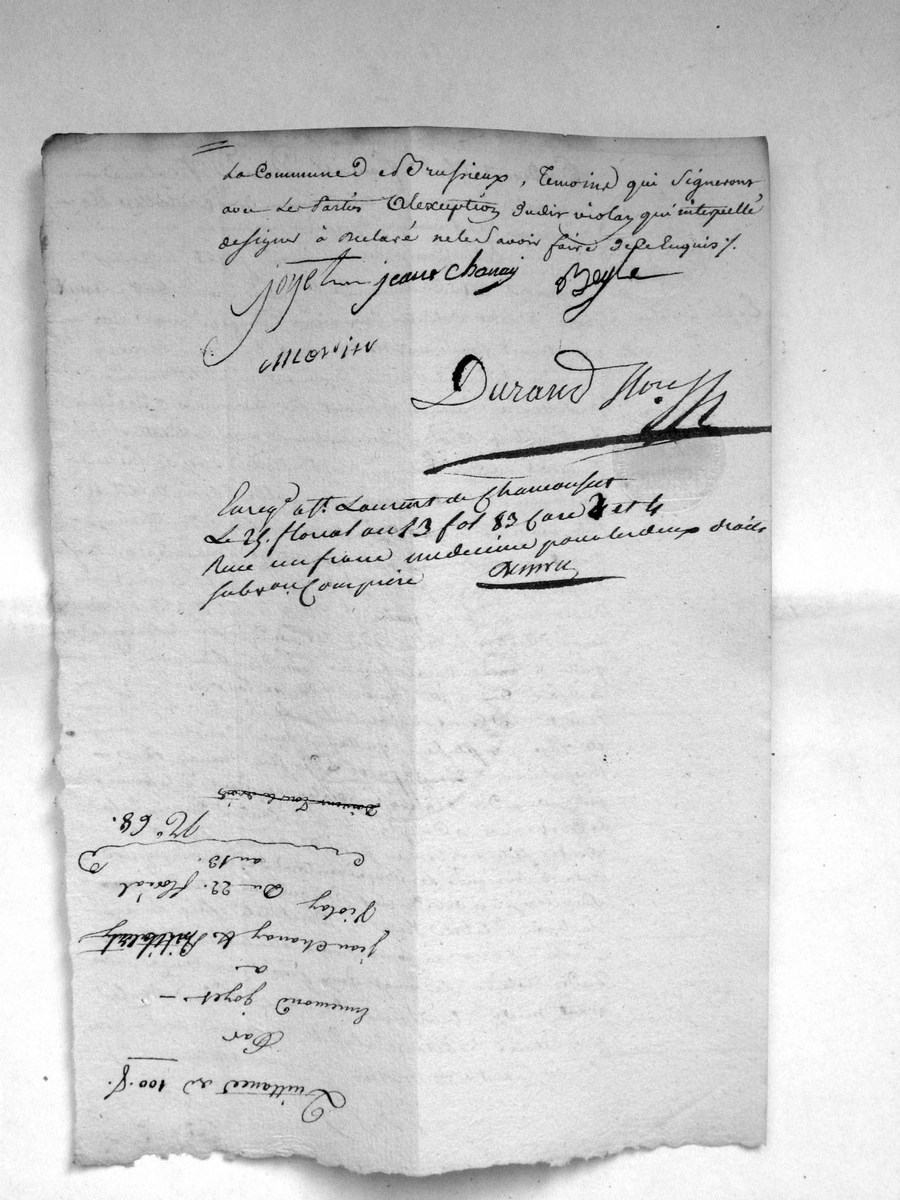 La Commune de Brussieux, Temoins qui signeront
avec Les Parties Alexception dudit violay qui interpellé
designer à Declaré ne le Savoir faire de ce Enquis ./.
joyet jean chanay Beyle
Morin
Durand No.re
Enreg.é a S.t Laurent de Chamousset
Le 25 floreal an 13 fol 83 Case 3 et 4
Recu un franc un decime pour les deux droits
subvon Comprise
Quittance de 100 f.
Par
Ennemond joyet -
a
jean Chanay &
Violay Du 22. floréal
an 13.
N.o 68.